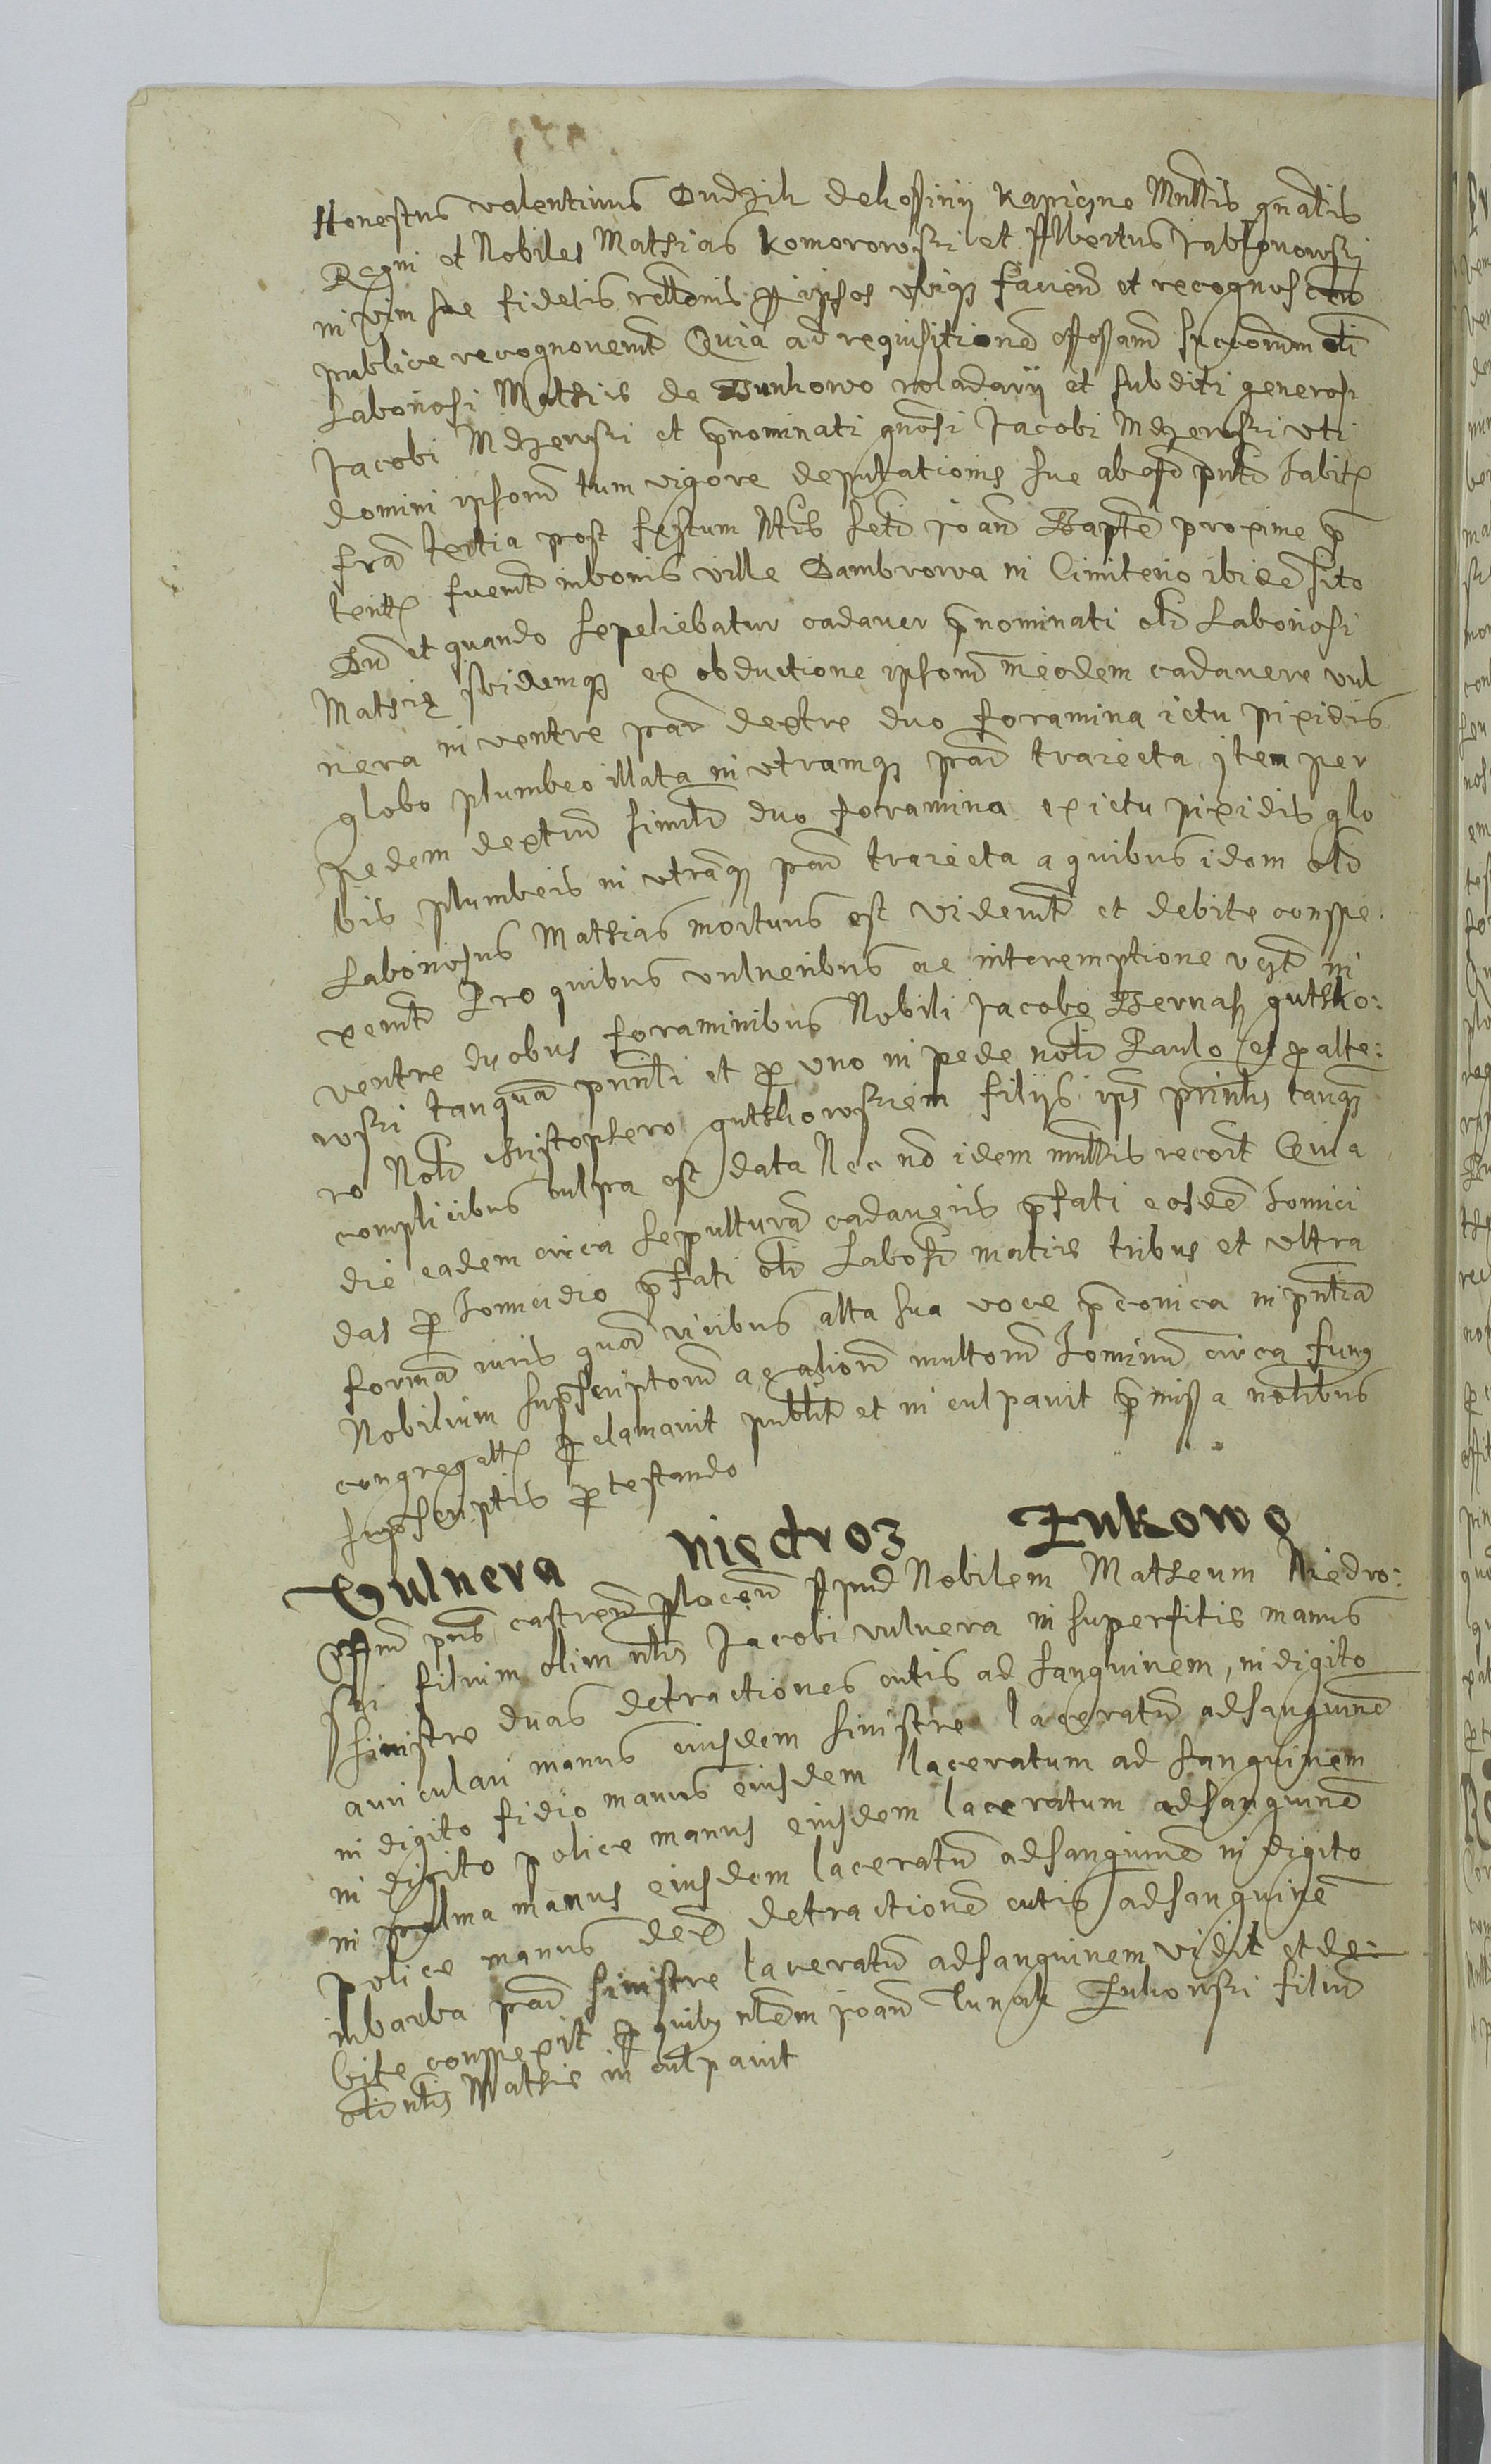 Honestus valentinus Dudzik de kossinij kapiczne Mnltis gnalis
Regni et Nobiles Mathias Komorowski et Albertus Jablonowski
in vim sue fidelis rltionis p ipsos vbiq faciend et recognoscend
publice recognouerut Quia ad requisitione successorum olim
Laboriosi Mathie de Bunkowo et subditi generosi
Jacobi Mdzewski et pnominati gnosi Jacobi Mdzewski vti
domini ipsoru tum vigore deputationis sue ab offo pnti habite
fria tertia post festum Ntis scti Joan Bapte proxime p
terit fuerut in bonis ville Dambrowa in Cimiterio ibide sito
Du et quando sepeliebatur cadauer pnominati olim Laboriosi
Mathie ibidemq ex obductione ipsoru in eodem cadauere vul
nera in ventre par dextre duo foramina ictu pixidis
globo plumbeo illata in vtramq par traiecta item per
pedem dextru similr duo foramina ex ictu pixidis glo
bis plumbeis in vtraq par traiecta a quibus idem olim
Laboriosus Mathias mortuus est viderut et debite conspe
xerut Pro quibus vulneribus ac interemptione in
ventre duobus foraminibus Nobili Jacobo Bernass gutsko:
wski tanqua prin et p vno in pede nobli Paulo et p alte:
ro Nobli Christophero gutskowskiem filijs ips prinlis tanq
complicibus culpa est data Nec no idem mnltis recoit Quia
die eadem circa sepultura cadaueris pfati eosde homici
das p homicidio pfati olim Labosi matis tribus et vltra
forma iuris vicibus alta sua voce pconica in pntia
Nobilium supscriptoru ac alioru multoru hominu circa funq
congregatt pclamauit publir et inculpauit pmissa nobilibus
supscriptis ptestando
Vulnera niedroz Zukowo
Offm pns castren plocen Apud Nobilem Matheum Niedro:
ski filium olim nlis Jacobi vulnera in superficiis manus
sinistre duas detractiones cutis ad sanguinem, in digito
auriculari manus eiusdem sinistre laceratu ad sanguine
in digito fidio manus eiusdem laceratum ad sanguinem
in digito police manus eiusdem laceratum ad sanguine
in palma manus eiusdem laceratu ad sanguine in digito
police manus dex detractione cutis ad sanguine
in barba par sinistre laceratu ad sanguinem vidit et de-
bite conspexit p quibq nlem Joan Lunak Zukowski filiu
olim nlis Mathie inculpauit